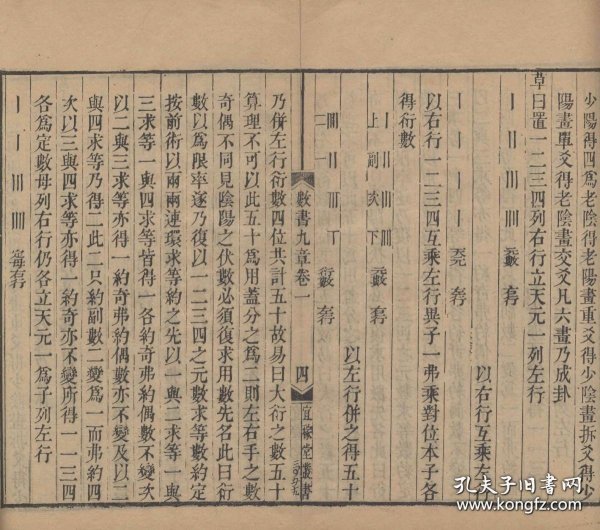 少陽得四爲老陰得老陽畫重爻得少陰畫拆爻得少
陽畫單爻得老陰畫交爻凡六畫乃成卦
草曰置一二三四列右行立天元一列左行
〡 〢 〣 𝍣 元數 右行
〡 〡 〡 〡 天元 左行
以右行互乘左行
以右行一二三四互乘左行異子一弗乘對位本子各
得衍數
〡 〢 〣 𝍣 元數 右行
上 副 次 下
衍數 左行
以左行併之得五十
數書九章卷一
四
宜稼堂叢書
乃併左行衍數四位共計五十故易曰大衍之數五十
算理不可以此五十爲用蓋分之爲二則左右手之數
奇偶不同見陰陽之伏數必須復求用數先名此曰衍
數以爲限率遂乃復以一二三四之元數求等數約定
按前術以兩兩連環求等約之先以一與二求等一與
三求等一與四求等皆得一各約奇弗約偶數不變次
以二與三求等亦得一約奇弗約偶數亦不變及以二
與四求等乃得二此二只約副數二變爲一而弗約四
次以三與四求等亦得一約奇亦不變所得一一三四
〡 〡 〣 𝍣 定母 右行
各爲定數母列右行仍各立天元一爲子列左行
孔夫子旧书网
www.kongfz.com